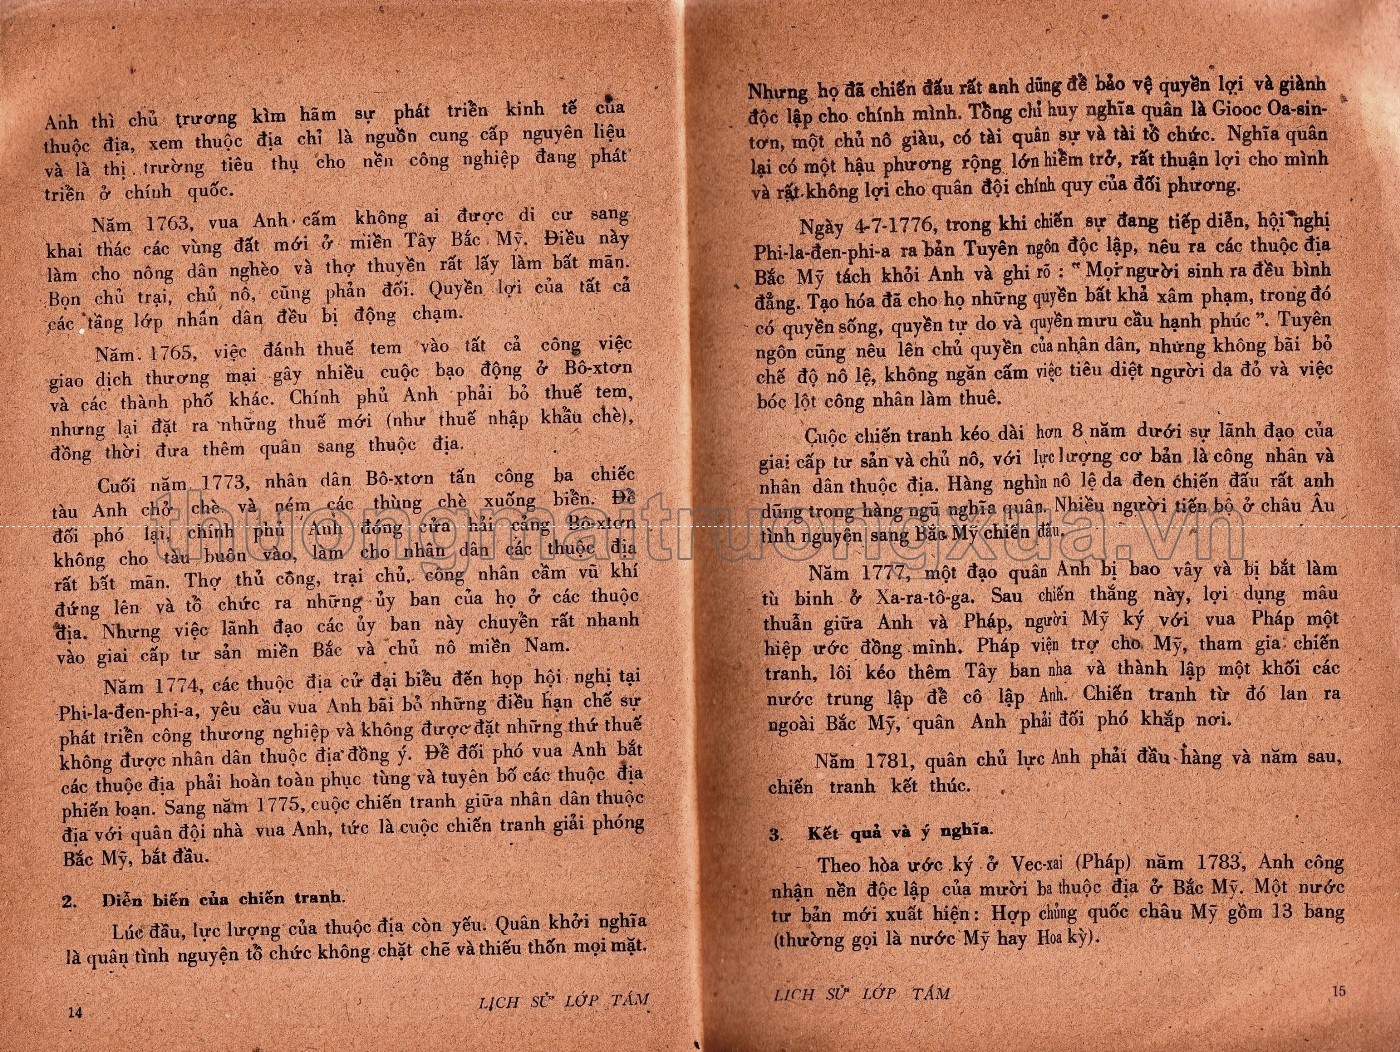 Anh thì chủ trương kìm hãm sự phát triển kinh tế của
thuộc địa, xem thuộc địa chỉ là nguồn cung cấp nguyên liệu
và là thị trường tiêu thụ cho nền công nghiệp đang phát
triển ở chính quốc.
Năm 1763, vua Anh cấm không ai được di cư sang
khai thác các vùng đất mới ở miền Tây Bắc Mỹ. Điều này
làm cho nông dân nghèo và thợ thuyền rất lấy làm bất mãn.
Bọn chủ trại, chủ nô, cũng phản đối. Quyền lợi của tất cả
các tầng lớp nhân dân đều bị động chạm.
Năm 1765, việc đánh thuế tem vào tất cả công việc
giao dịch thương mại gây nhiều cuộc bạo động ở Bô-xtơn
và các thành phố khác. Chính phủ Anh phải bỏ thuế tem,
nhưng lại đặt ra những thuế mới (như thuế nhập khẩu chè),
đồng thời đưa thêm quân sang thuộc địa.
Cuối năm 1773, nhân dân Bô-xtơn tấn công ba chiếc
tàu Anh chở chè và ném các thùng chè xuống biển. Để
đối phó lại, chính phủ Anh đóng cửa hải cảng Bô-xtơn
không cho tàu buôn vào, làm cho nhân dân các thuộc địa
rất bất mãn. Thợ thủ công, trại chủ, công nhân cầm vũ khí
đứng lên và tổ chức ra những ủy ban của họ ở các thuộc
địa. Nhưng việc lãnh đạo các ủy ban này chuyển rất nhanh
vào giai cấp tư sản miền Bắc và chủ nô miền Nam.
Năm 1774, các thuộc địa cử đại biểu đến họp hội nghị tại
Phi-la-đen-phi-a, yêu cầu vua Anh bãi bỏ những điều hạn chế sự
phát triển công thương nghiệp và không được đặt những thứ thuế
không được nhân dân thuộc địa đồng ý. Để đối phó vua Anh bắt
các thuộc địa phải hoàn toàn phục tùng và tuyên bố các thuộc địa
phiến loạn. Sang năm 1775, cuộc chiến tranh giữa nhân dân thuộc
địa với quân đội nhà vua Anh, tức là cuộc chiến tranh giải phóng
Bắc Mỹ, bắt đầu.
2. Diễn biến của chiến tranh.
Lúc đầu, lực lượng của thuộc địa còn yếu. Quân khởi nghĩa
là quân tình nguyện tổ chức không chặt chẽ và thiếu thốn mọi mặt.
LỊCH SỬ LỚP TÁM
14
Nhưng họ đã chiến đấu rất anh dũng để bảo vệ quyền lợi và giành
độc lập cho chính mình. Tổng chỉ huy nghĩa quân là Giooc Oa-sin-
tơn, một chủ nô giàu, có tài quân sự và tài tổ chức. Nghĩa quân
lại có một hậu phương rộng lớn hiểm trở, rất thuận lợi cho mình
và rất không lợi cho quân đội chính quy của đối phương.
Ngày 4-7-1776, trong khi chiến sự đang tiếp diễn, hội nghị
Phi-la-đen-phi-a ra bản Tuyên ngôn độc lập, nêu ra các thuộc địa
Bắc Mỹ tách khỏi Anh và ghi rõ : “ Mọi người sinh ra đều bình
đẳng. Tạo hóa đã cho họ những quyền bất khả xâm phạm, trong đó
có quyền sống, quyền tự do và quyền mưu cầu hạnh phúc ”. Tuyên
ngôn cũng nêu lên chủ quyền của nhân dân, nhưng không bãi bỏ
chế độ nô lệ, không ngăn cấm việc tiêu diệt người da đỏ và việc
bóc lột công nhân làm thuê.
Cuộc chiến tranh kéo dài hơn 8 năm dưới sự lãnh đạo của
giai cấp tư sản và chủ nô, với lực lượng cơ bản là công nhân và
nhân dân thuộc địa. Hàng nghìn nô lệ da đen chiến đấu rất anh
dũng trong hàng ngũ nghĩa quân. Nhiều người tiến bộ ở châu Âu
tình nguyện sang Bắc Mỹ chiến đấu.
Năm 1777, một đạo quân Anh bị bao vây và bị bắt làm
tù binh ở Xa-ra-tô-ga. Sau chiến thắng này, lợi dụng mâu
thuẫn giữa Anh và Pháp, người Mỹ ký với vua Pháp một
hiệp ước đồng minh. Pháp viện trợ cho Mỹ, tham gia chiến
tranh, lôi kéo thêm Tây ban nha và thành lập một khối các
nước trung lập để cô lập Anh. Chiến tranh từ đó lan ra
ngoài Bắc Mỹ, quân Anh phải đối phó khắp nơi.
Năm 1781, quân chủ lực Anh phải đầu hàng và năm sau,
chiến tranh kết thúc.
3. Kết quả và ý nghĩa.
Theo hòa ước ký ở Vec-xai (Pháp) năm 1783, Anh công
nhận nền độc lập của mười ba thuộc địa ở Bắc Mỹ. Một nước
tư bản mới xuất hiện : Hợp chủng quốc châu Mỹ gồm 13 bang
(thường gọi là nước Mỹ hay Hoa kỳ).
LỊCH SỬ LỚP TÁM
15
thuongmaitruongxua.vn